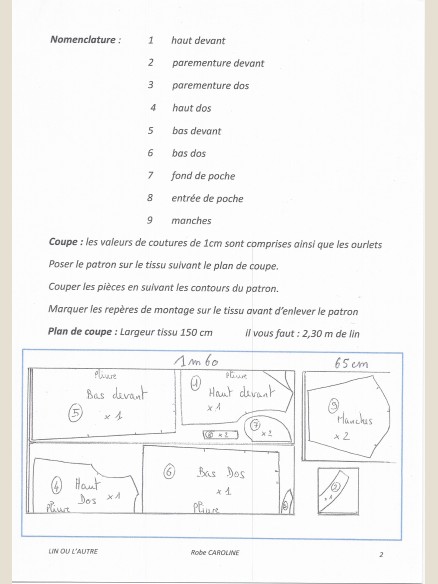 Nomenclature :
1 haut devant
2 parementure devant
3 parementure dos
4 haut dos
5 bas devant
6 bas dos
7 fond de poche
8 entrée de poche
9 manches
Coupe : les valeurs de coutures de 1cm sont comprises ainsi que les ourlets
Poser le patron sur le tissu suivant le plan de coupe.
Couper les pièces en suivant les contours du patron.
Marquer les repères de montage sur le tissu avant d'enlever le patron
Plan de coupe : Largeur tissu 150 cm il vous faut : 2,30 m de lin
1m60
65cm
Pliure
Bas devant
5 x1
Pliure
1 Haut devant
x1
7
x2
x2
9
Manches
x2
4 Haut
Dos x1
Pliure
6 Bas Dos
x1
Pliure
x1
LIN OU L'AUTRE Robe CAROLINE 2